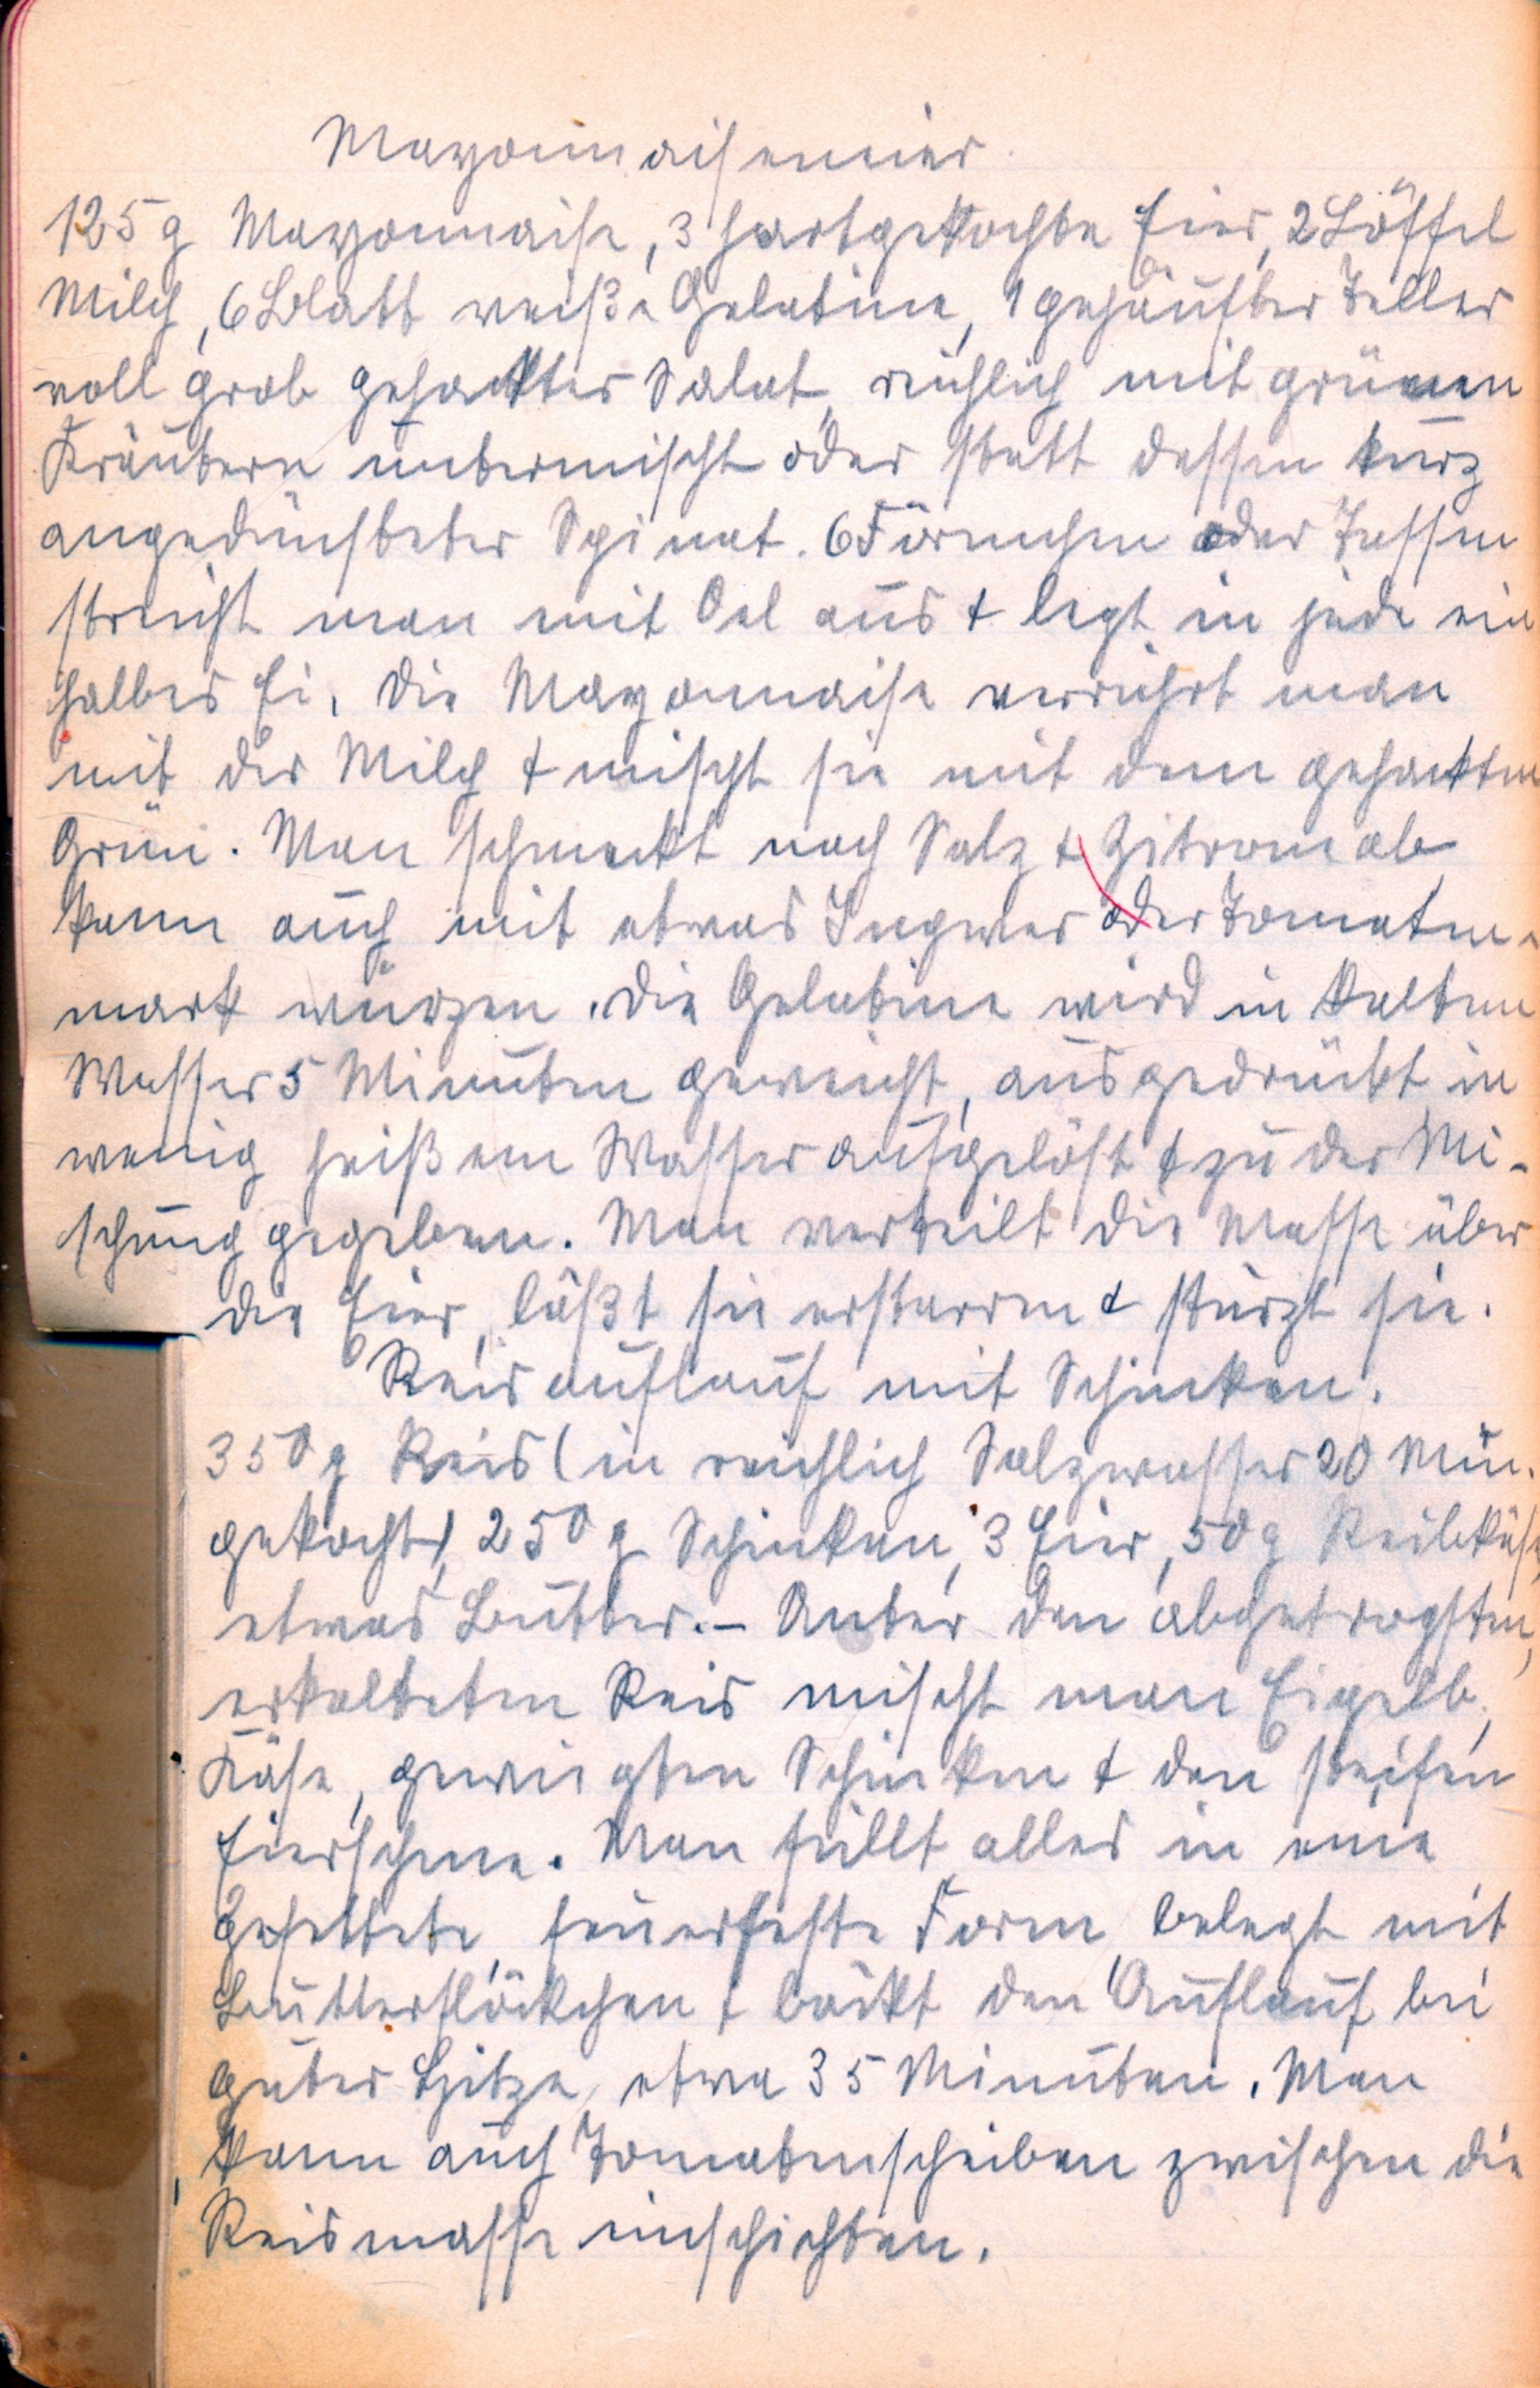 Mayonnaiseneier.
125 g Mayonnaise, 3 hartgekochte Eier, 2 Löffel
Milch, 6 Blatt weiße Gelatine, 1 gehäufter Teller
voll grob gehackter Salat, reichlich mit grünen
Kräutern untermischt oder statt dessen kurz
angedünsteter Spinat. 6 Förmchen oder Tassen
streicht man mit Oel aus & legt in jede ein
halbes Ei. Die Mayonnaise verrührt man
mit der Milch & mischt sie mit dem gehackten
Grün. Man schmeckt nach Salz & Zitrone ab
kann auch mit etwas Ingwer oder Tomaten-
mark würzen. Die Gelatine wird in kaltem
Wasser 5 Minuten geweicht, ausgedrückt in
wenig heißem Wasser aufgelöst & zu der Mi-
schung gegeben. Man verteilt die Masse über
die Eier, läßt sie erstarren & stürzt sie.
Reisauflauf mit Schinken.
350 g Reis (in reichlich Salzwasser 20 Min.
gekocht), 250 g Schinken, 3 Eier, 50 g Reibkäse,
etwas Butter. – Unter den abgetropften,
erkalteten Reis mischt man Eigelb,
Käse, gewiegten Schinken & den steifen
Eierschnee. Man füllt alles in eine
gefettete, feuerfeste Form, belegt mit
Butterflöckchen & bäckt den Auflauf bei
guter Hitze etwa 35 Minuten. Man
kann auch Tomatenscheiben zwischen die
Reismasse einschichten.